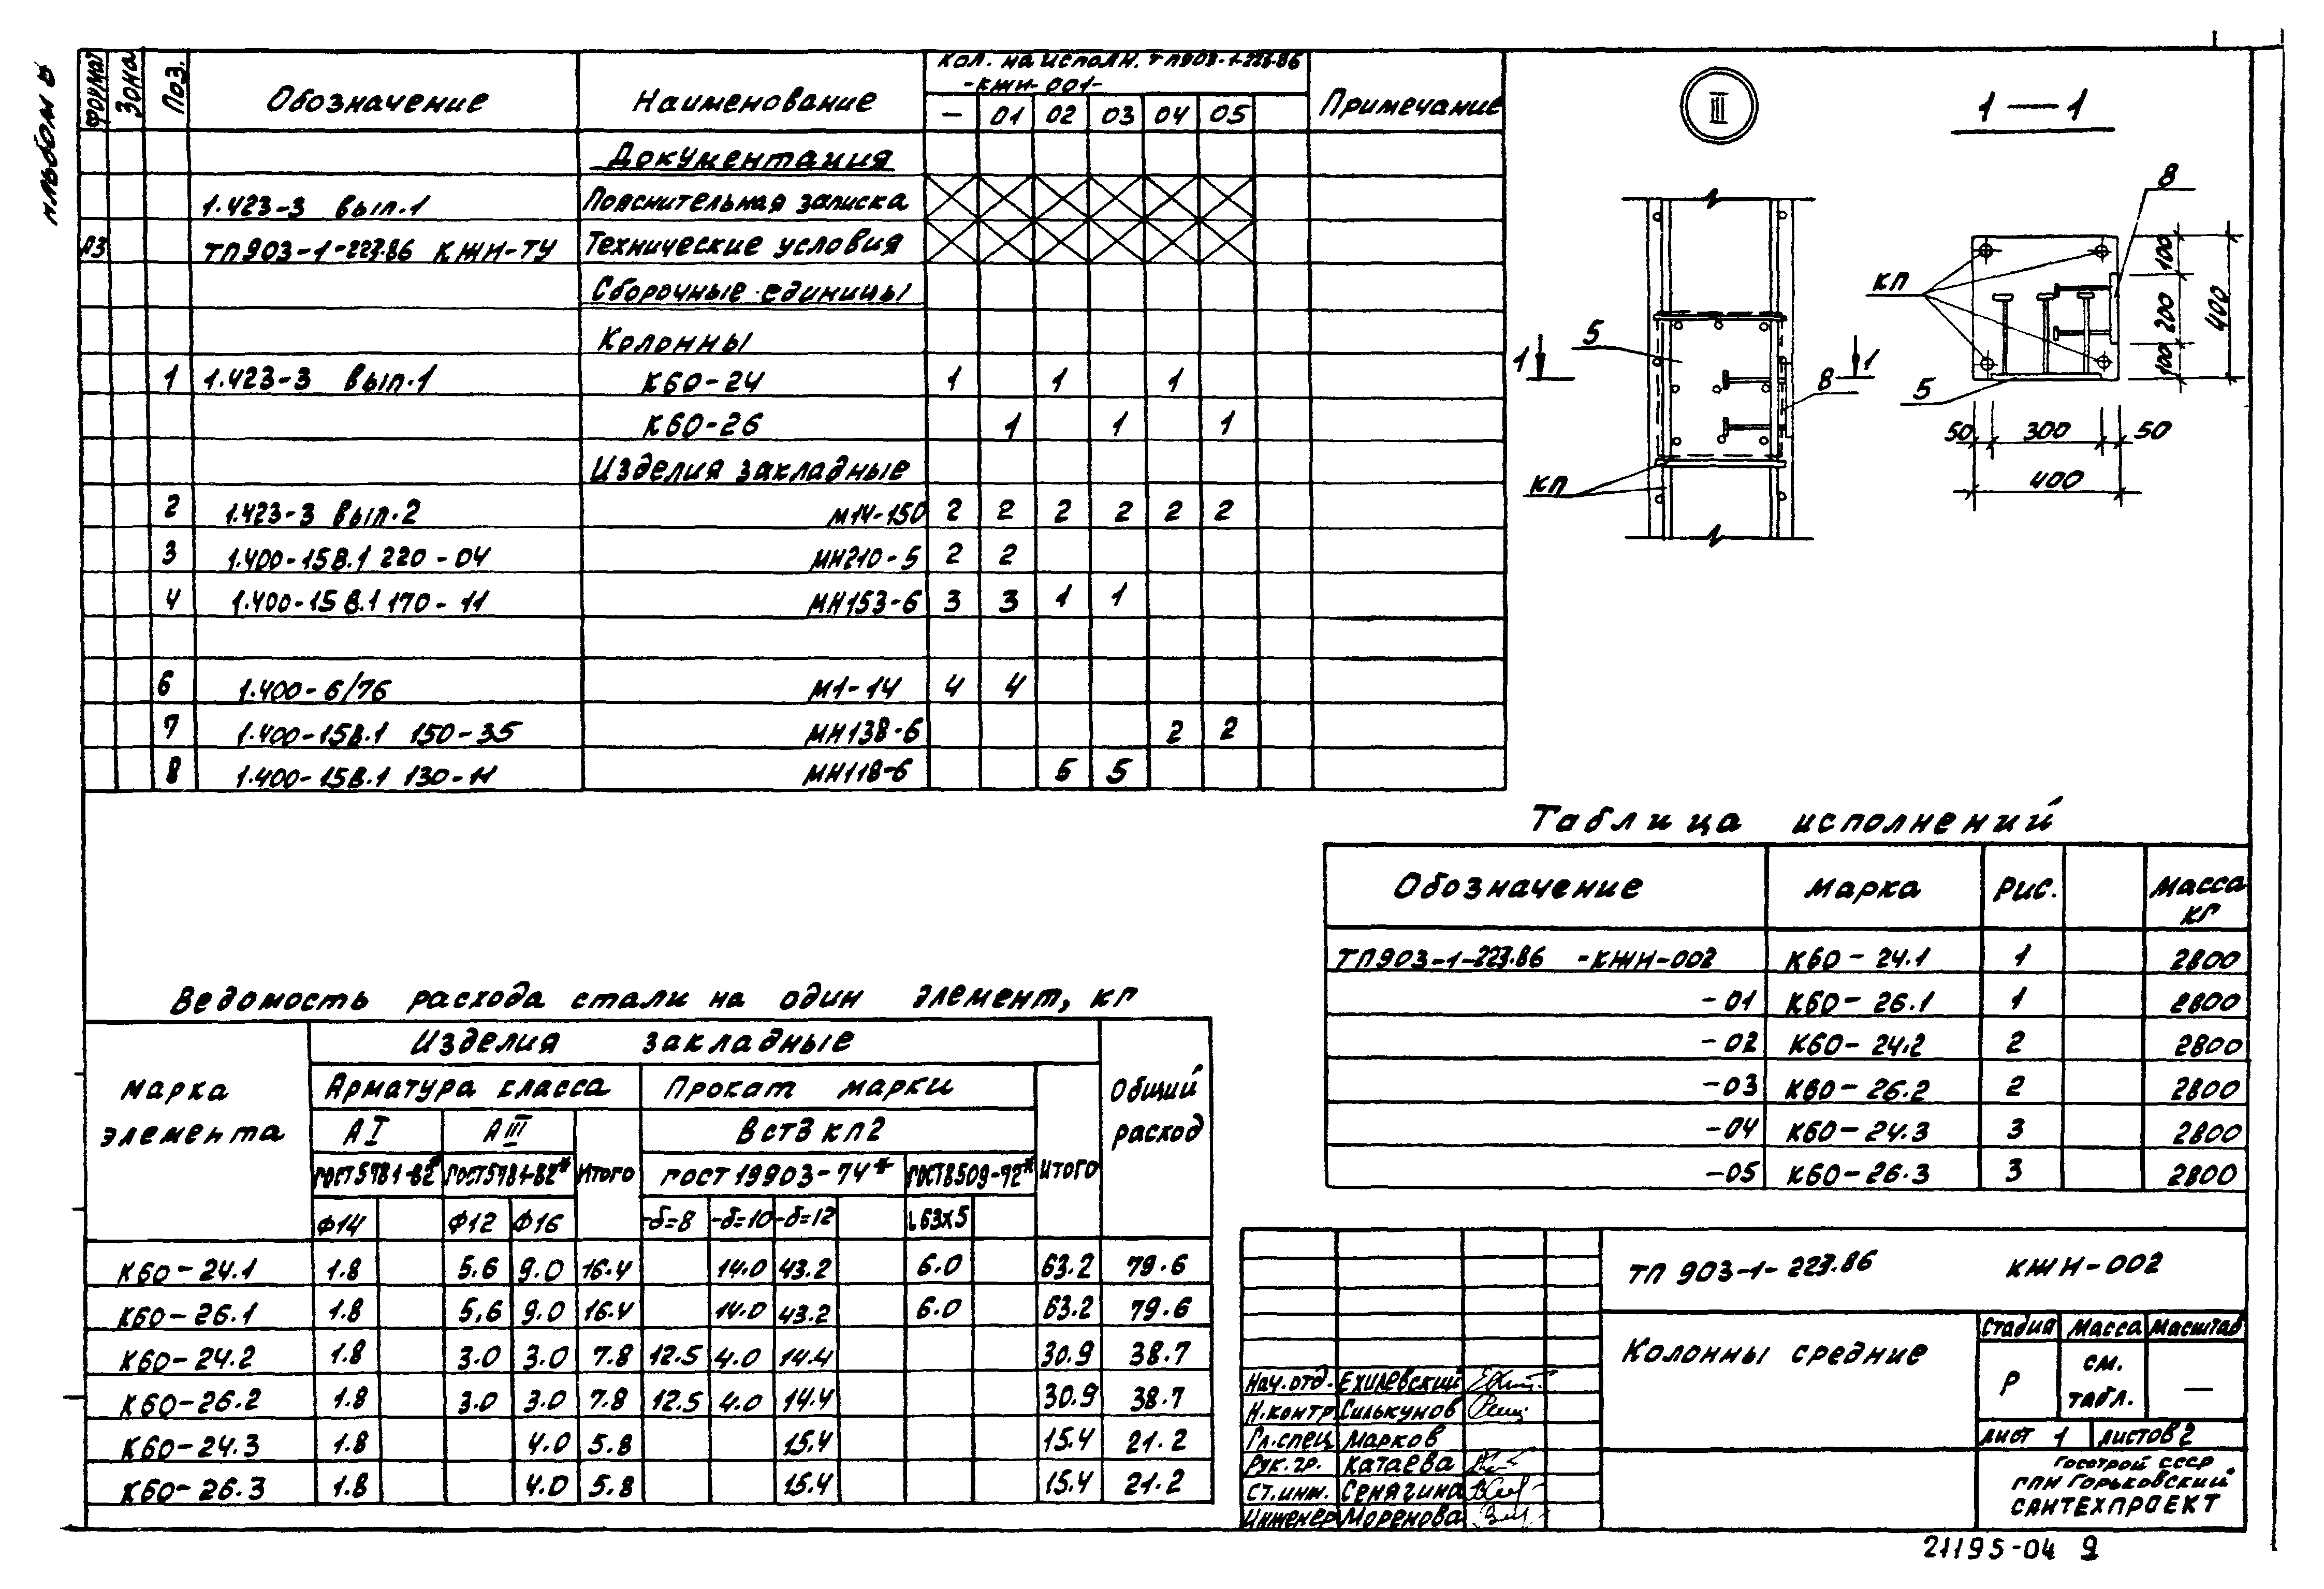 Альбом 6
Формат Зона Поз. Обозначение Наименование Кол. на исполн. ТП903-1-223.86 Примечание
-КЖН-001-
— 01 02 03 04 05
Документация
1.423-3 вып.1 Пояснительная записка
А3 ТП903-1-223.86 КЖН-ТУ Технические условия
Сборочные единицы
Колонны
1 1.423-3 вып.1 К60-24 1 1 1
К60-26 1 1 1
Изделия закладные
2 1.423-3 вып.2 М14-150 2 2 2 2 2 2
3 1.400-15В.1 220-04 МН210-5 2 2
4 1.400-15В.1 170-11 МН153-6 3 3 1 1
6 1.400-6/76 М1-14 4 4
7 1.400-15В.1 150-35 МН138-6 2 2
8 1.400-15В.1 130-11 МН118-6 5 5
III
5
1 1
8
КП
1—1
8
КП
5
100
200
100
400
50 300 50
400
Таблица исполнений
Обозначение Марка Рис. Масса
кг
ТП903-1-223.86 -КЖН-002 К60-24.1 1 2800
-01 К60-26.1 1 2800
-02 К60-24.2 2 2800
-03 К60-26.2 2 2800
-04 К60-24.3 3 2800
-05 К60-26.3 3 2800
Ведомость расхода стали на один элемент, кг
Марка элемента Изделия закладные Общий расход
Арматура класса Прокат марки Итого
АI АIII Итого ВСт3кп2
ГОСТ5781-82* ГОСТ5781-82* ГОСТ19903-74* ГОСТ8509-72*
Ф14 Ф12 Ф16 -δ=8 -δ=10 -δ=12 L63х5
К60-24.1 1.8 5.6 9.0 16.4 14.0 43.2 6.0 63.2 79.6
К60-26.1 1.8 5.6 9.0 16.4 14.0 43.2 6.0 63.2 79.6
К60-24.2 1.8 3.0 3.0 7.8 12.5 4.0 14.4 30.9 38.7
К60-26.2 1.8 3.0 3.0 7.8 12.5 4.0 14.4 30.9 38.7
К60-24.3 1.8 4.0 5.8 15.4 15.4 21.2
К60-26.3 1.8 4.0 5.8 15.4 15.4 21.2
ТП 903-1-223.86 КЖН-002
Колонны средние
Стадия Масса Масштаб
Р см. табл. —
Лист 1 Листов 2
Госстрой СССР
ГПИ Горьковский
САНТЕХПРОЕКТ
Нач.отд. Ехилевский
Н.контр. Силькунов
Гл.спец Марков
Рук.гр. Катаева
Ст.инж. Сенягина
Инженер Моренова
21195-04 9